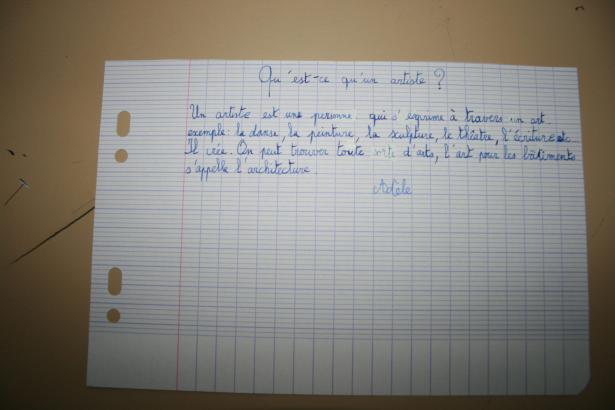 Qu'est-ce qu'un artiste ?
Un artiste est une personne qui s'exprime à travers un art.
exemple : la danse, la peinture, la sculpture, le théatre, l'écriture etc...
Il crée. On peut trouver toute sorte d'arts, l'art pour les bâtiments
s'appelle l'architecture.
Adèle